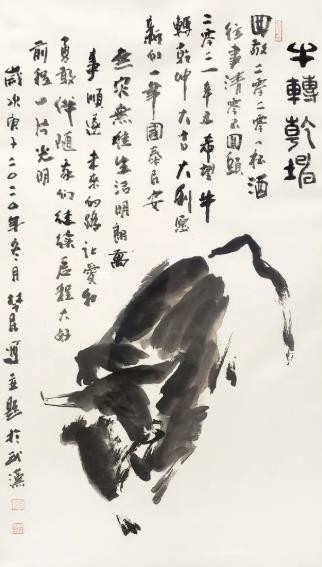 牛轉乾坤
回敬二零二零一杯酒
往事清零不回頭
二零二一辛丑希望牛
轉乾坤大吉大利愿
新的一年國泰民安
無灾無難生活明朗萬
事順遂未來的路让愛和
勇敢伴隨我们继续启程大好
前程一片光明
歲次庚子二〇二〇年冬月題於武漢